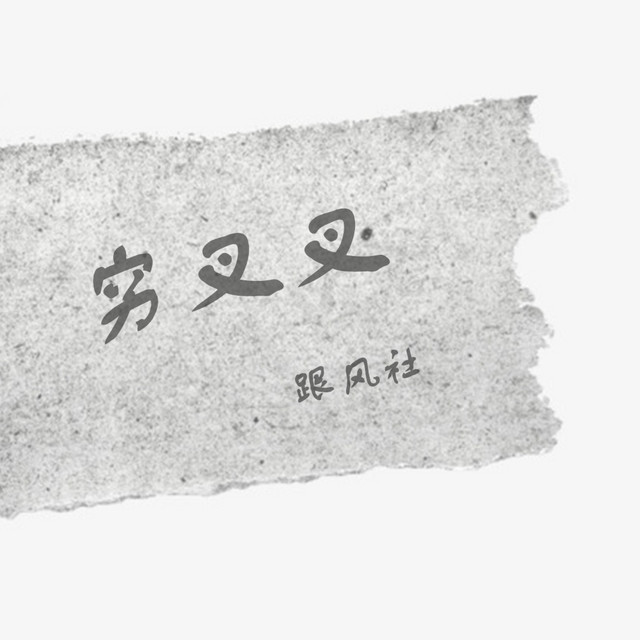 穷叉叉
跟风社